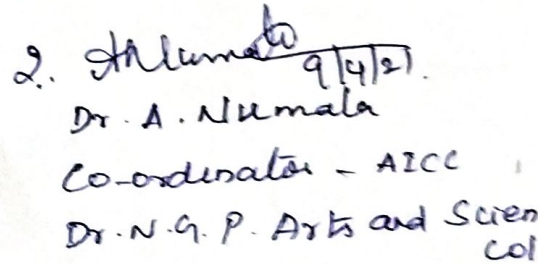 2. 9/4/21.
Dr. A. Nirmala
Co-ordinator - AICC
Dr. N. G. P. Arts and Scien
Col